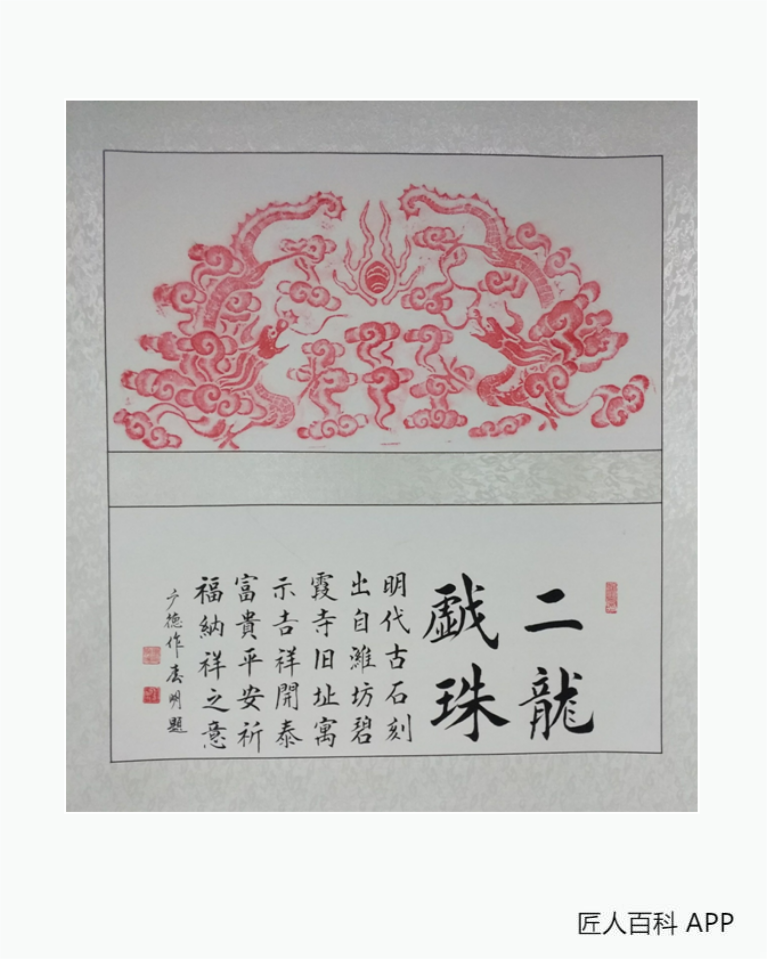 二龍
戯珠
明代古石刻
出自濰坊碧
霞寺旧址寓
示吉祥開泰
富貴平安祈
福納祥之意
德作春明题
匠人百科 APP